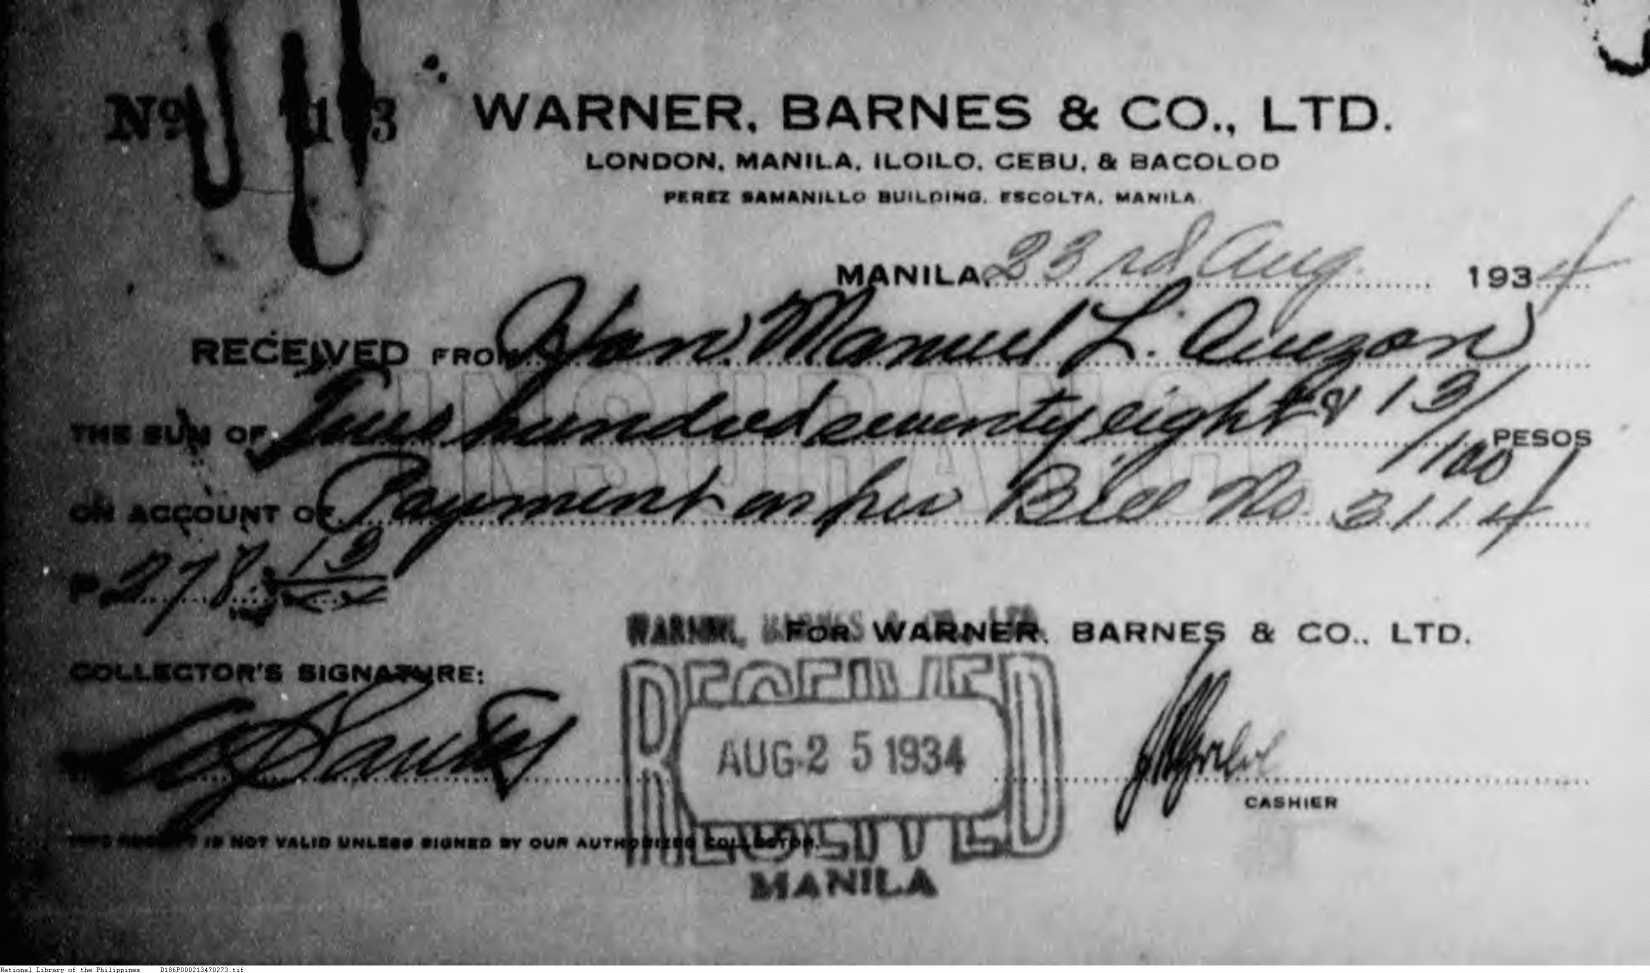 WARNER, BARNES & CO., LTD.
LONDON, MANILA, ILOILO, CEBU, & BACOLOD
PEREZ SAMANILLO BUILDING, ESCOLTA, MANILA
MANILA, 23rd Aug. 1934
RECEIVED FROM Hon. Manuel L. Quezon
INSURANCE
THE SUM OF Two hundred seventy eight & 13/100 PESOS
ON ACCOUNT OF Payment as per Bill No. 3114
P 278.13
WARNER, BARNES
FOR WARNER, BARNES & CO., LTD.
COLLECTOR'S SIGNATURE:
RECEIVED
AUG 25 1934
CASHIER
THIS RECEIPT IS NOT VALID UNLESS SIGNED BY OUR AUTHORIZED COLLECTOR.
RECEIVED
MANILA
National Library of the Philippines D186P000213470273.tif